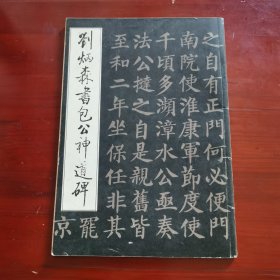 劉炳森書包公神道碑
之自有正門何必便門
南院使淮康軍節度使
千頃多瀕漳水公亟奏
法公撻之自是親舊皆
至和二年坐保任非其
罷
京